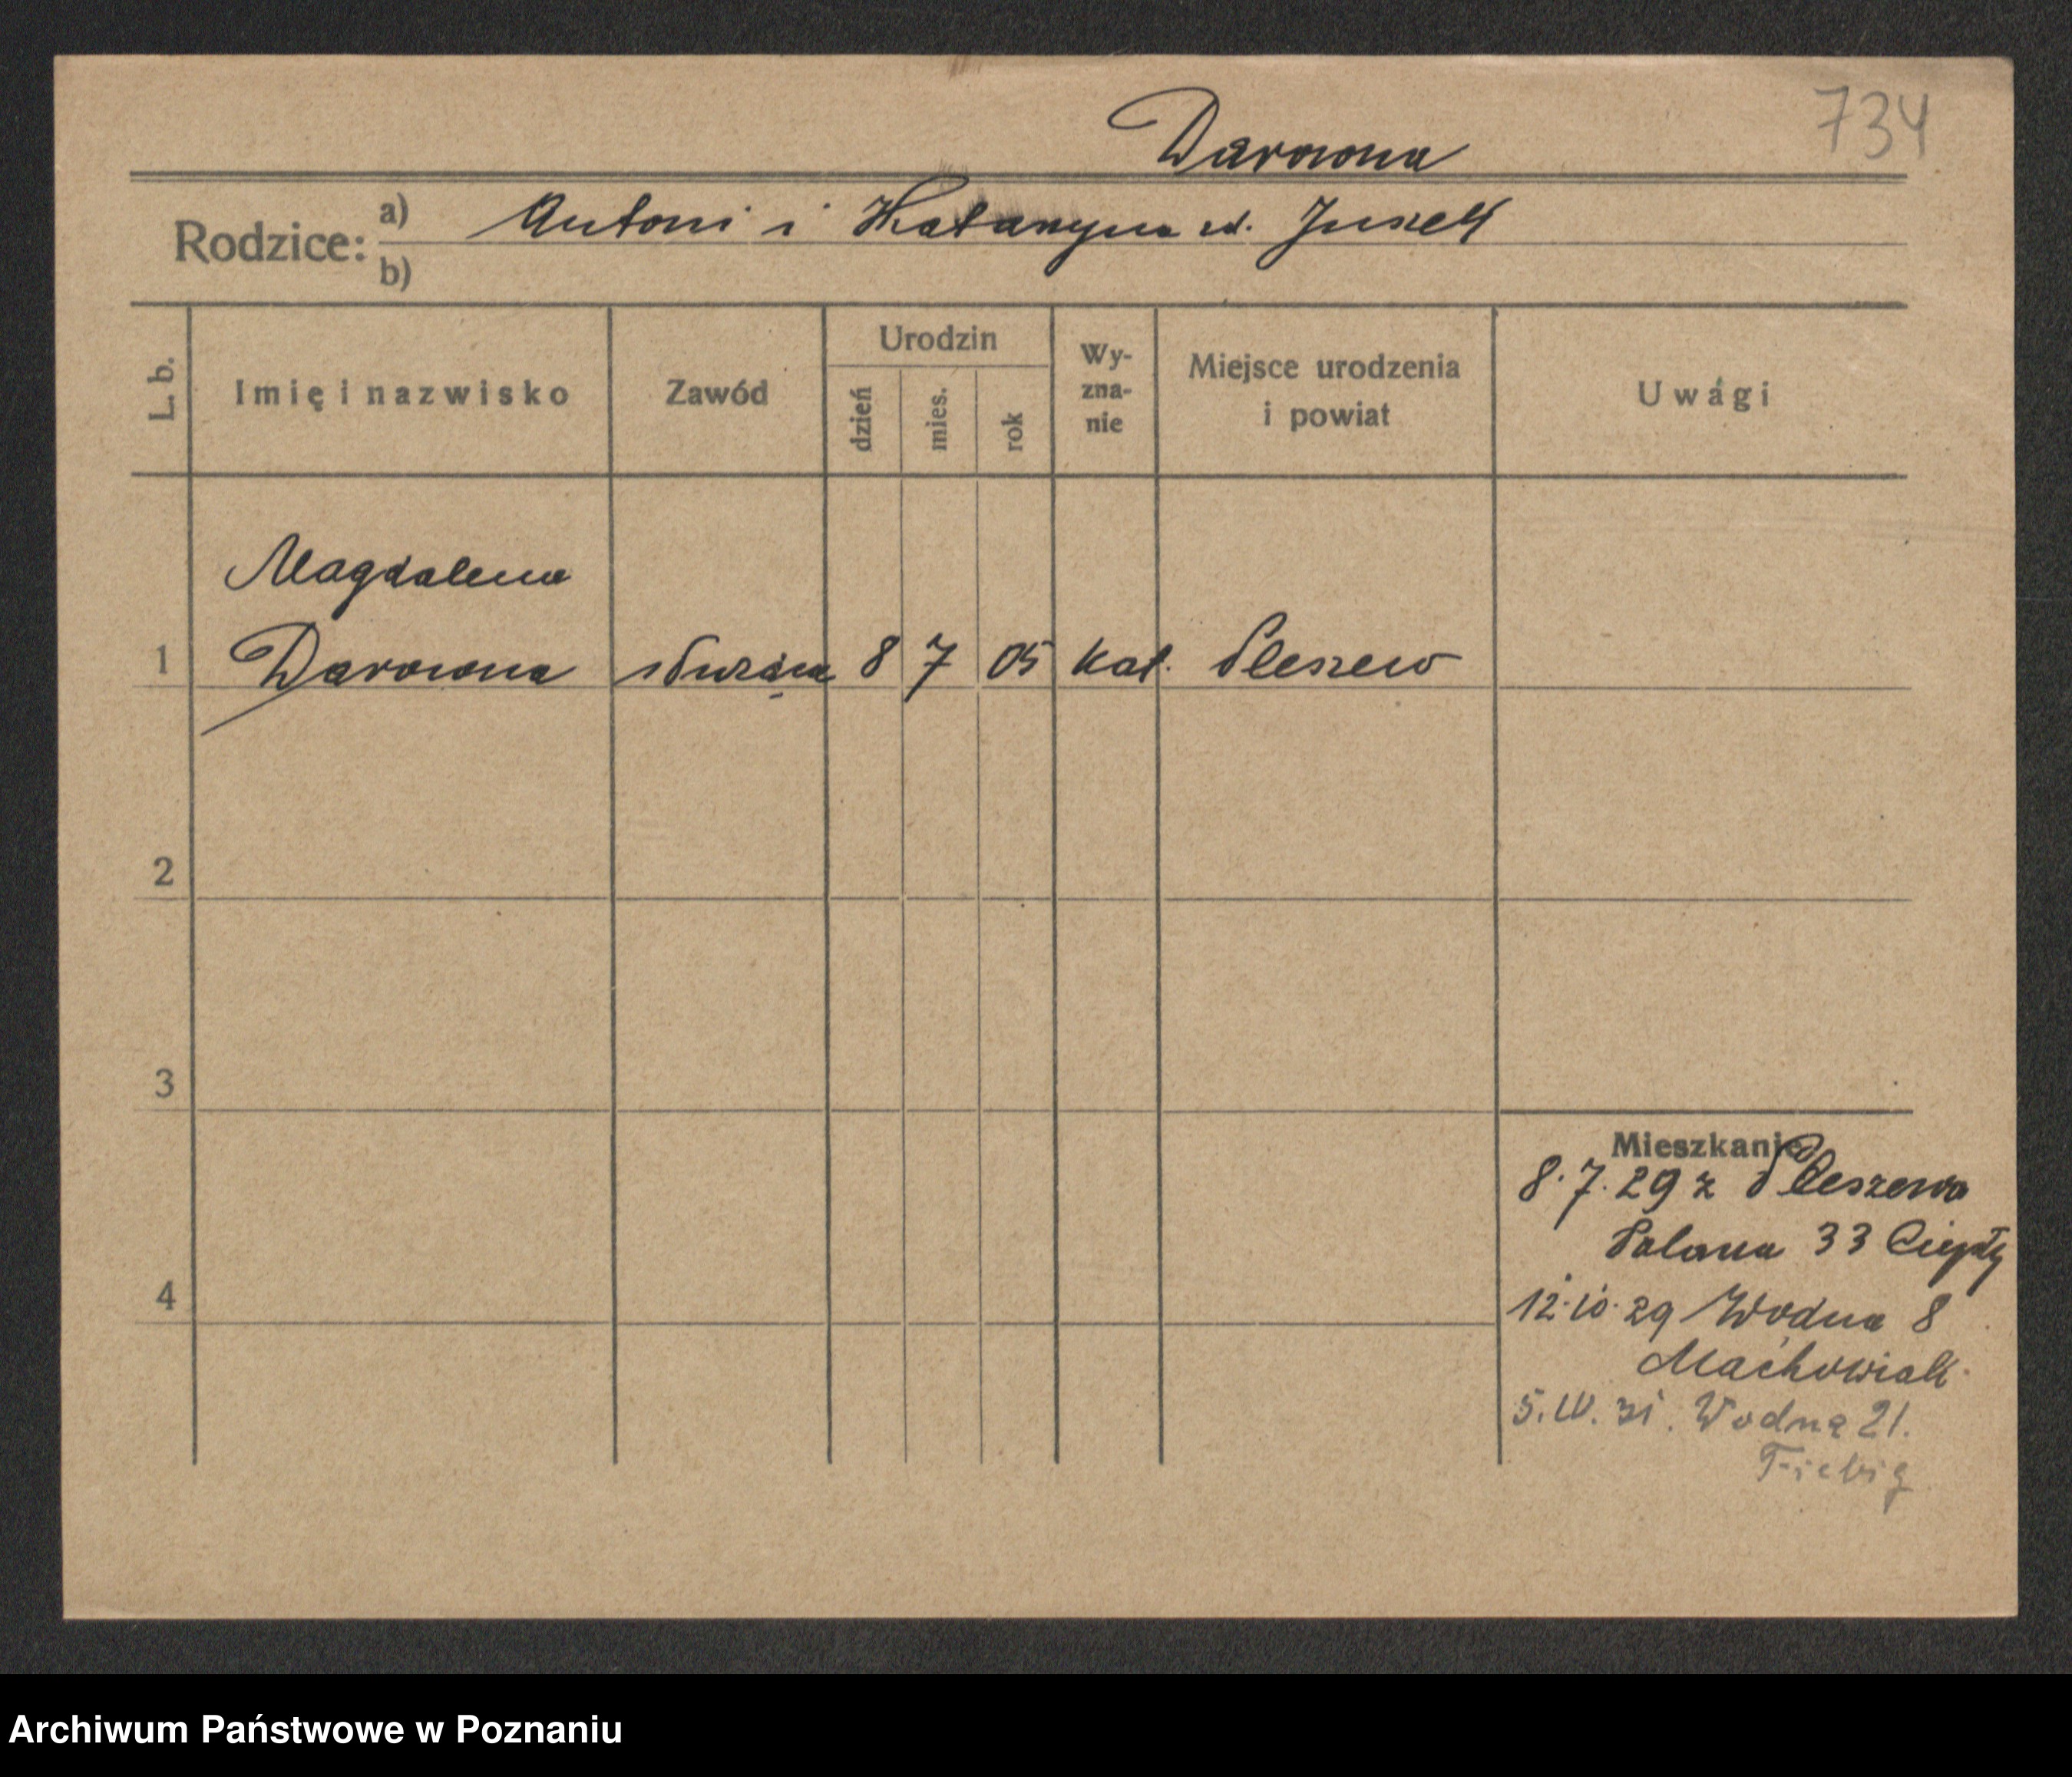 734
Darowna
Rodzice: a) Antoni i Katarzyna zd. Juszek
b)
L. b. Imię i nazwisko Zawód Urodzin dzień mies. rok Wy-zna-nie Miejsce urodzenia i powiat Uwagi
Magdalena
1 Darowna służąca 8 7 05 kat. Pleszew
2
3
4
Mieszkanie
8.7.29 z Pleszewa
Polana 33 Ciepły
12.10.29 Wodna 8
Maćkowiak.
5. IV. 31. Wodna 21.
Fiebig
Archiwum Państwowe w Poznaniu